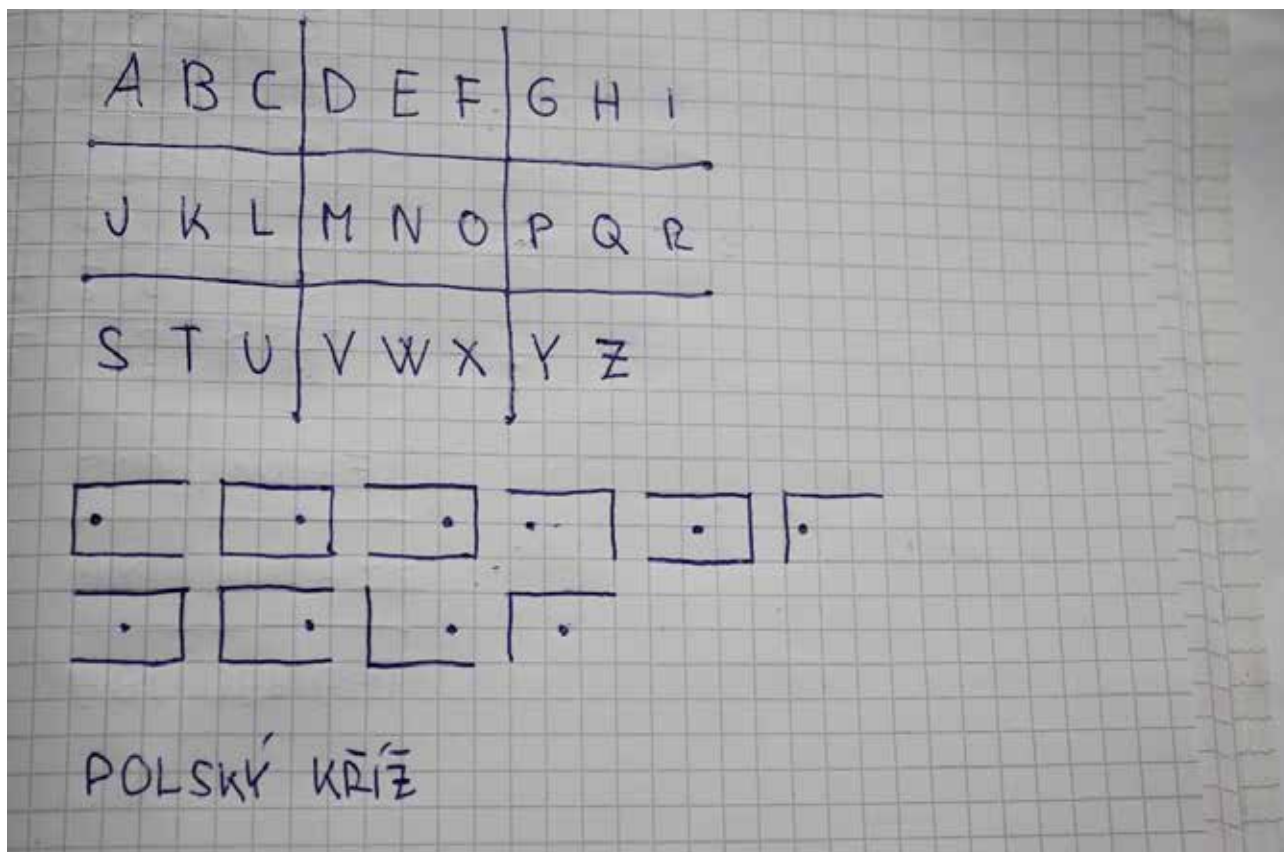 A B C D E F G H I
J K L M N O P Q R
S T U V W X Y Z
POLSKÝ KŘÍŽ